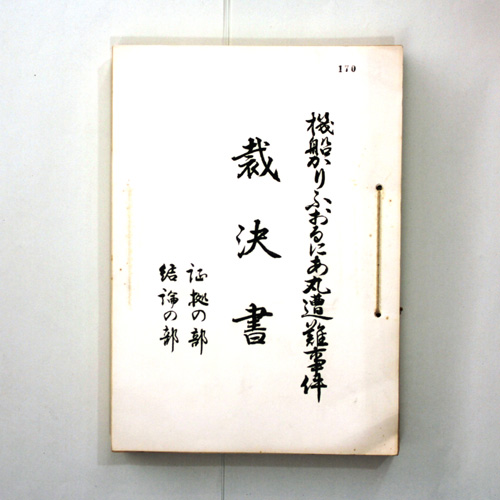 170
機船かりふおるにあ丸遭難事件
裁決書
証拠の部
結論の部